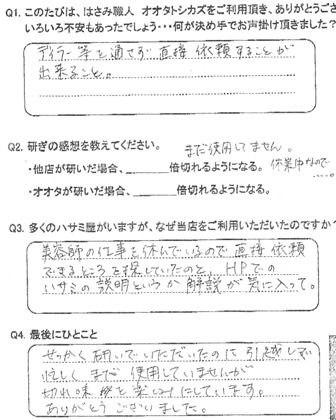 Q1. このたびは、はさみ職人 オオタトシカズをご利用頂き、ありがとうござ
いろいろ不安もあったでしょう・・・何が決め手でお声掛け頂きました?
ディラー等を通さず直接依頼することが
出来ること。
Q2. 研ぎの感想を教えてください。
まだ使用してません。
・他店が研いだ場合、______倍切れるようになる。
休業中なので
・オオタが研いだ場合、______倍切れるようになる。
Q3. 多くのハサミ屋がいますが、なぜ当店をご利用いただいたのですか?
美容師の仕事を休んでいるので直接依頼
できるところを探していたのと、HPでの
ハサミの説明というか解説が気に入って。
Q4. 最後にひとこと
せっかく研いでいただいたのに引越しで
忙しくまだ使用していませんが
切れ味を楽しみにしています。
ありがとうございました。